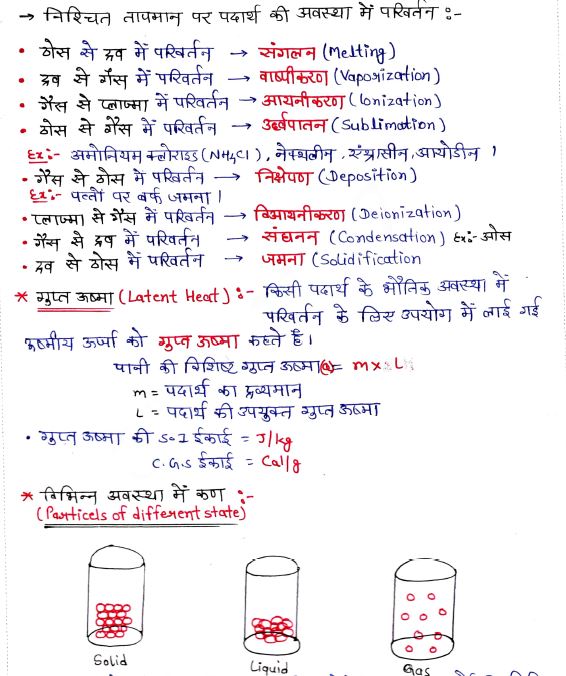 → निश्चित तापमान पर पदार्थ की अवस्था में परिवर्तन :-
• ठोस से द्रव में परिवर्तन → संगलन (Melting)
• द्रव से गैस में परिवर्तन → वाष्पीकरण (Vaporization)
• गैस से प्लाज्मा में परिवर्तन → आयनीकरण (Ionization)
• ठोस से गैस में परिवर्तन → उर्ध्वपातन (Sublimation)
Ex:- अमोनियम क्लोराइड (NH4Cl), नेफ्थलीन, एंथ्रासीन, आयोडीन ।
• गैस से ठोस में परिवर्तन → निक्षेपण (Deposition)
Ex:- पत्तों पर बर्फ जमना ।
• प्लाज्मा से गैस में परिवर्तन → विआयनीकरण (Deionization)
• गैस से द्रव में परिवर्तन → संघनन (Condensation) Ex:- ओस
• द्रव से ठोस में परिवर्तन → जमना (Solidification
* गुप्त ऊष्मा (Latent Heat) :- किसी पदार्थ के भौतिक अवस्था में
परिवर्तन के लिए उपयोग में लाई गई
ऊष्मीय ऊर्जा को गुप्त ऊष्मा कहते है।
पानी की विशिष्ट गुप्त ऊष्मा(Q)= m × L
m = पदार्थ का द्रव्यमान
L = पदार्थ की उपयुक्त गुप्त ऊष्मा
• गुप्त ऊष्मा की S.I ईकाई = J/kg
C.G.S ईकाई = Cal/g
* विभिन्न अवस्था में कण :-
(Particels of different state)
Solid Liquid Gas